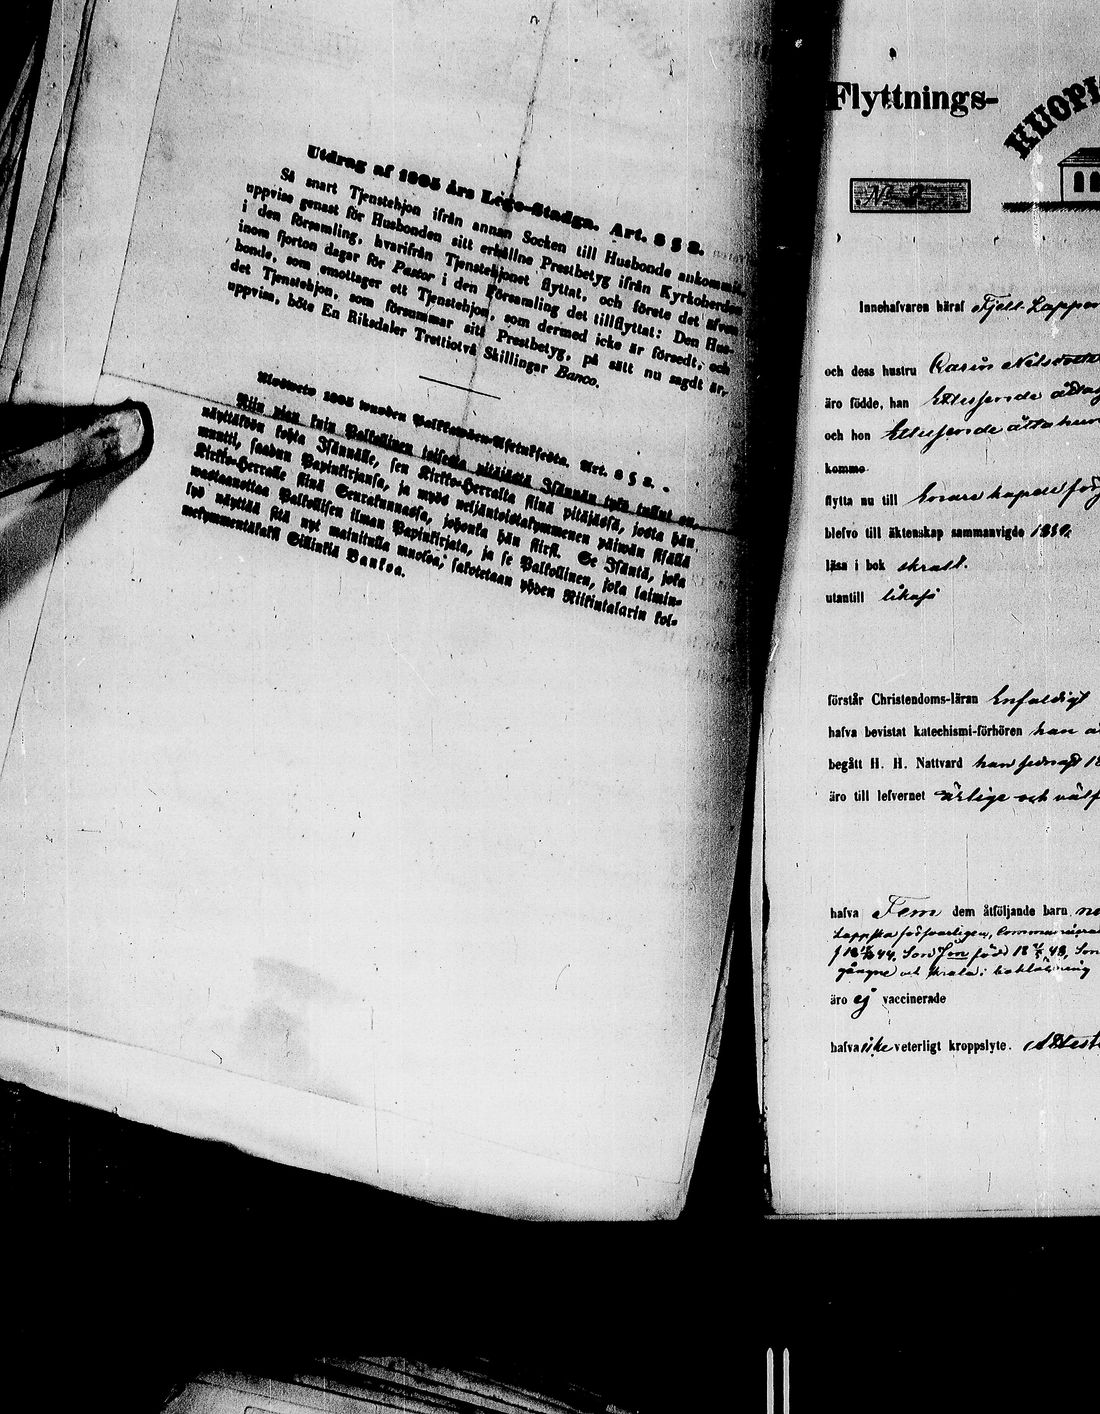 Utdrag af 1805 års Lego-Stadga. Art. 8 § 2.
Så snart Tjenstehjon ifrån annan Socken till Husbonde ankommit,
uppvise genast för Husbonden sitt erhållne Prestbetyg ifrån Kyrkoherden
i den församling, hvarifrån Tjenstehjonet flyttat, och förete det äfven
inom fjorton dagar för Pastor i den Församling det tillflyttat: Den Hus-
bonde, som emottager ett Tjenstehjon, som dermed icke är försedt, och
det Tjenstehjon, som försummar sitt Prestbetyg, på sätt nu sagdt är,
uppvisa, böte En Riksdaler Trettiotvå Skillingar Banco.
1805 wuoden Palkkawäen-Asetuksesta. Art. 8 § 2.
Niin pian kuin Palkollinen toisesta pitäjästä Isännän tykö tullut on,
näyttäköön kohta Isännälle, sen Kirkko-Herralta siinä pitäjässä, josta hän
muutti, saadun Papinkirjansa, ja myös neljäntoistakymmenen päiwän sisällä
Kirkko-Herralle siinä Seurakunnassa, johonka hän siirsi. Se Isäntä, joka
wastaanottaa Palkollisen ilman Papinkirjata, ja se Palkollinen, joka laimin-
lyö näyttää sitä nyt mainitulla muotoa; sakotetaan yhden Riikintalarin kol-
mekymmentäkaksi Sillinkiä Bankoa.
Flyttnings-
KUOPI
No
Innehafvaren häraf Fjell Lappen
och dess hustru Karin Nilsdotter
äro födde, han Ettusende åtta
och hon Ettusende åttahun
komme
flytta nu till Enare kapell
blefvo till äktenskap sammanvigde 1830.
läsa i bok skralt.
utantill likaså
förstår Christendoms-läran Enfaldigt
hafva bevistat katechismi-förhören han
begått H. H. Nattvard han sednast 18
äro till lefvernet ärlige och väl
hafva Fem dem åtföljande barn
Lappska försvarligen,
44, Son född 18 48, Son
i bokläsning
äro ej vaccinerade
hafva icke veterligt kroppslyte.